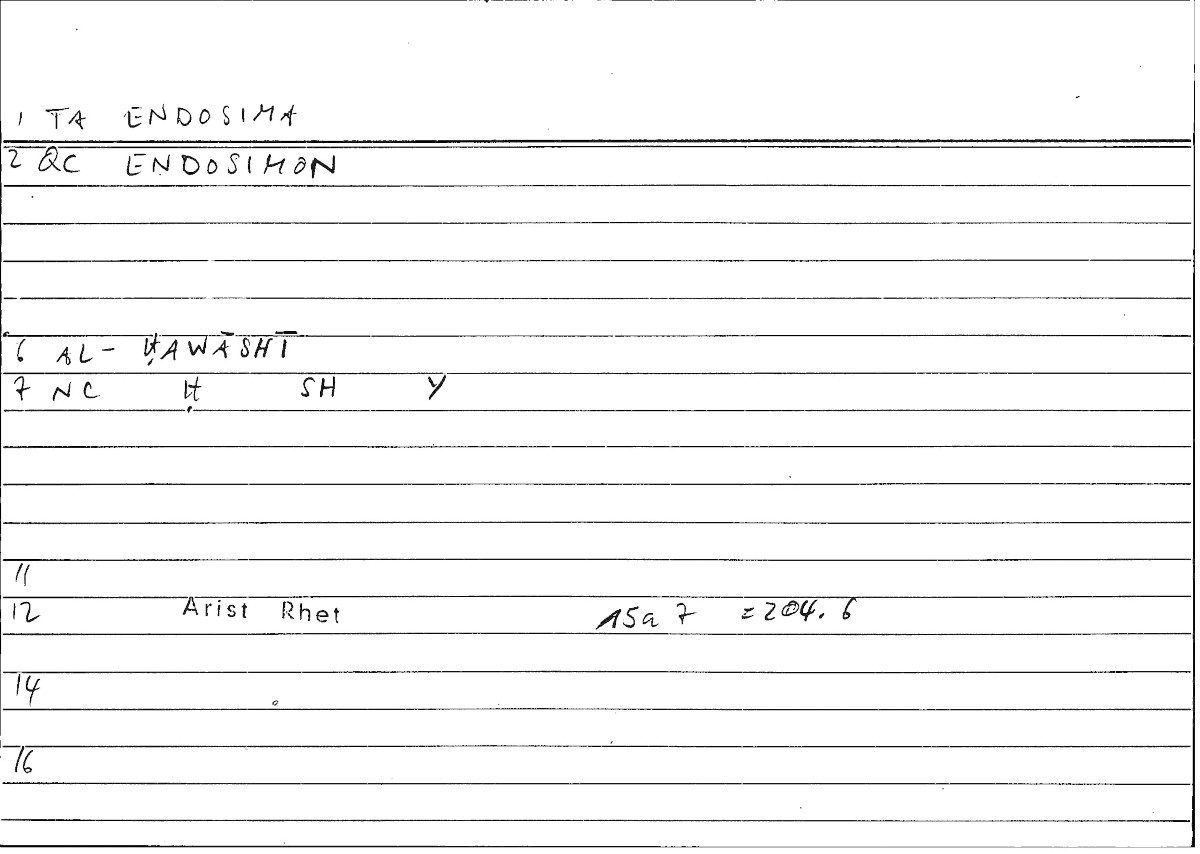 1 TA ENDOSIMA
2 QC ENDOSIMON
6 AL- ḤAWĀSHĪ
7 NC Ḥ SH Y
11
12 Arist Rhet 15a 7 = 204. 6
14
16